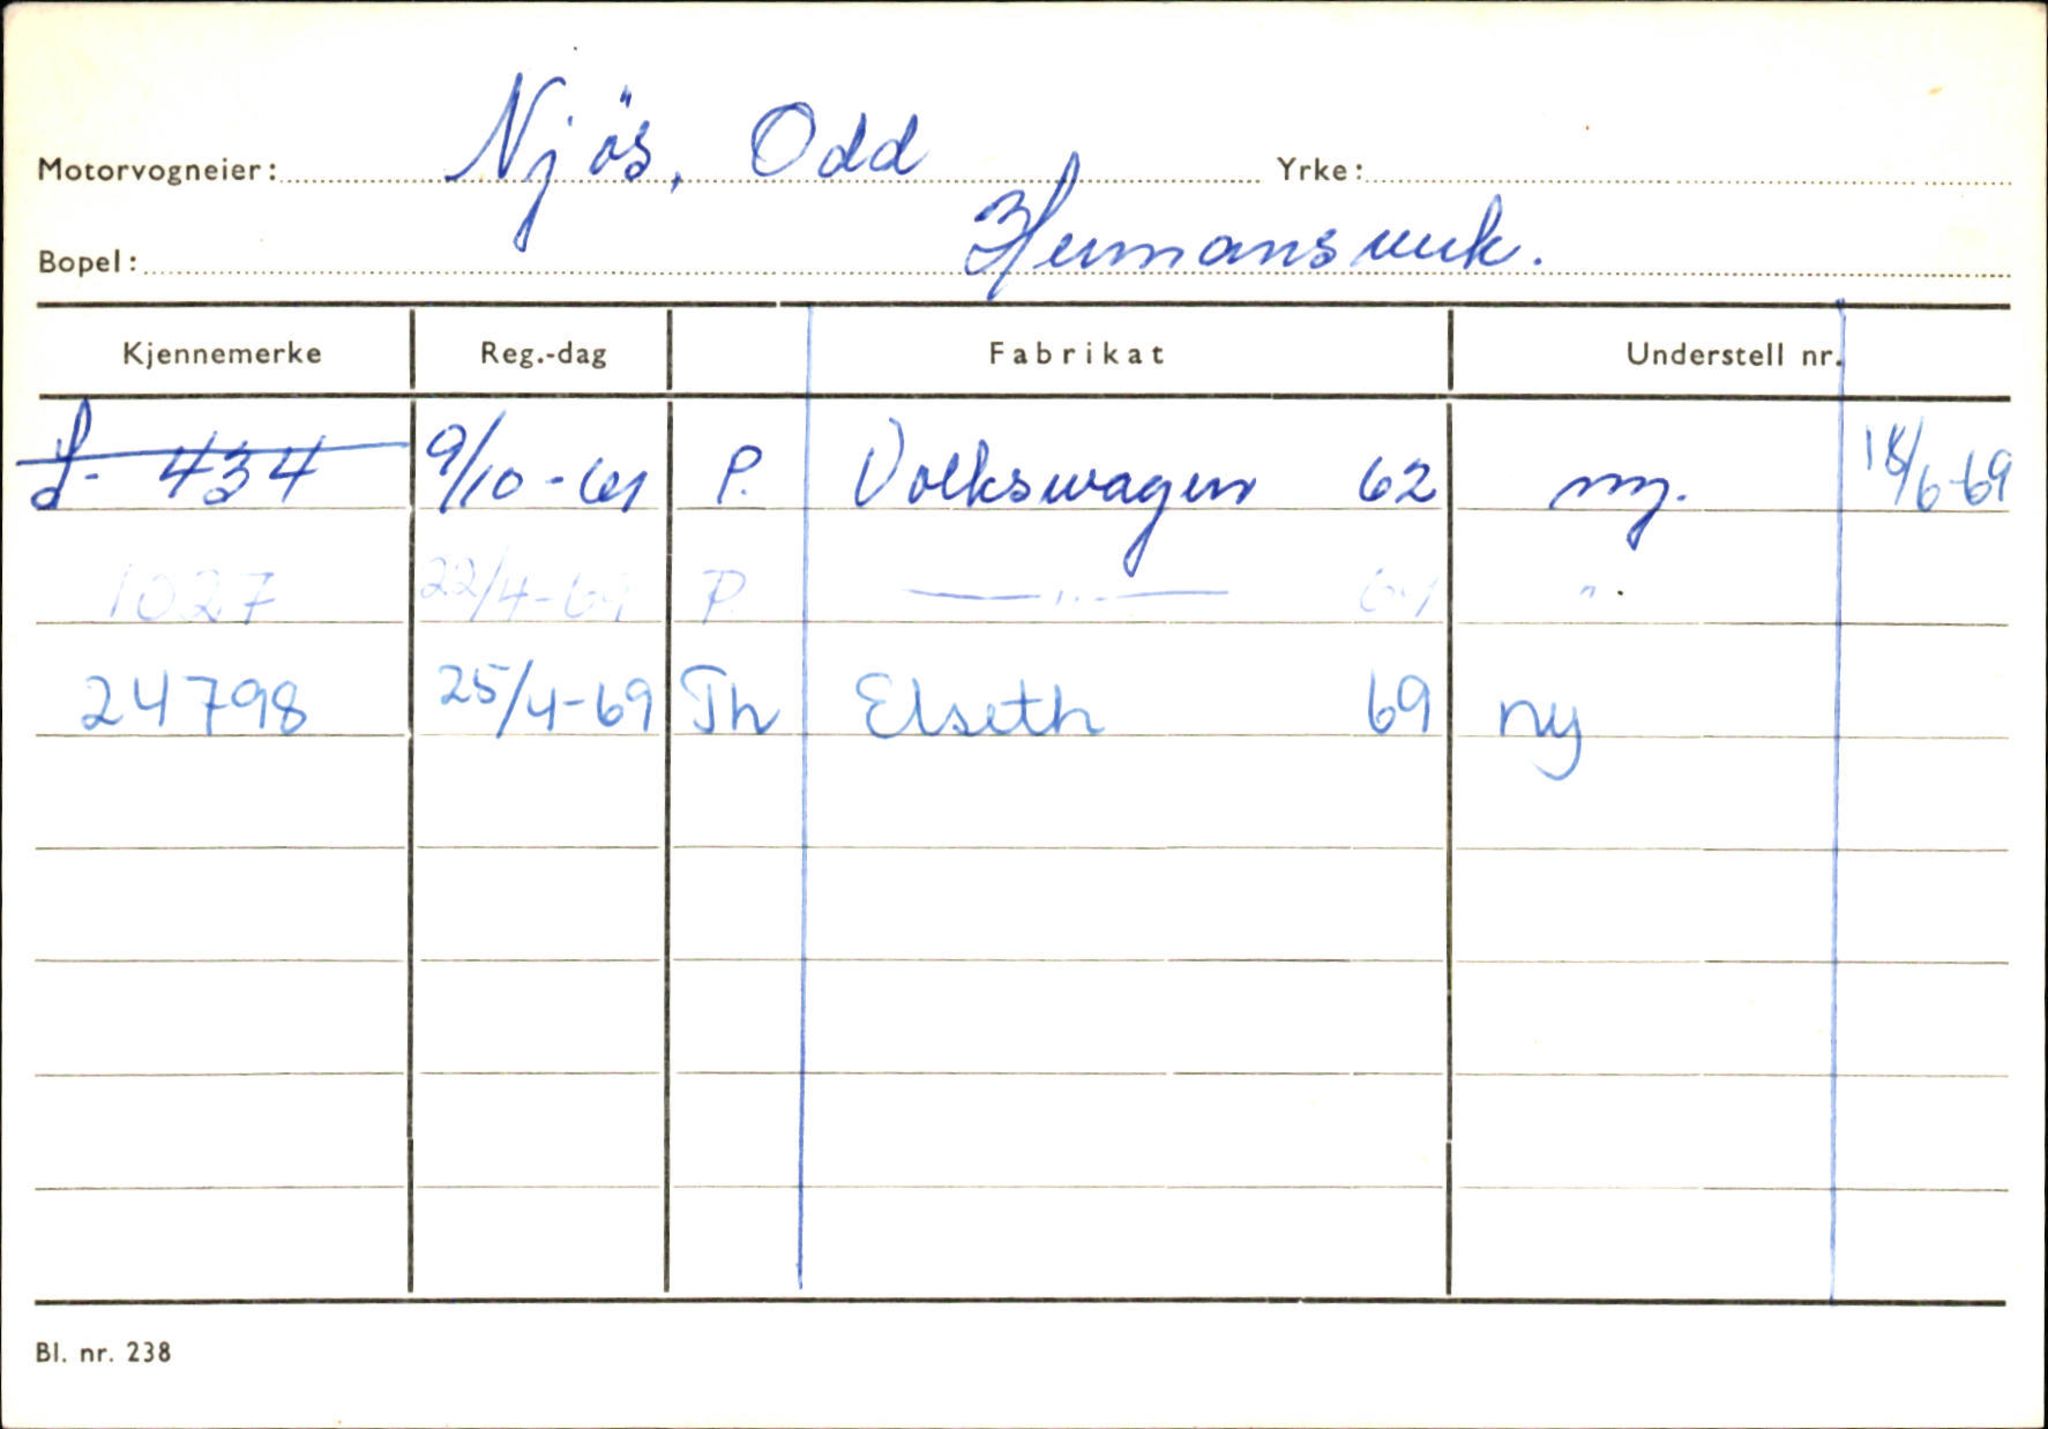 Motorvogneier: Njös, Odd Yrke:
Bopel: Hermansverk.
Kjennemerke Reg.-dag Fabrikat Understell nr.
S- 434 9/10-61 P. Volkswagen 62 ny. 18/6-69
1027 22/4-69 P. —"— "
24798 25/4-69 Th Elseth 69 ny
Bl. nr. 238